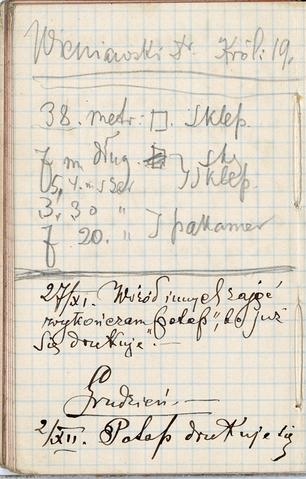 Wieniawski Dr. Król: 19.
38. metr. □. Sklep.
7 m dług.
5,4. m szer } Sklep.
3. 30 "
7. 20. " } pakamer
27/XI. Wśród innych zajęć
wykończam "Potop", bo już
się drukuje.—
Grudzień.—
2/XII. Potop drukuje się